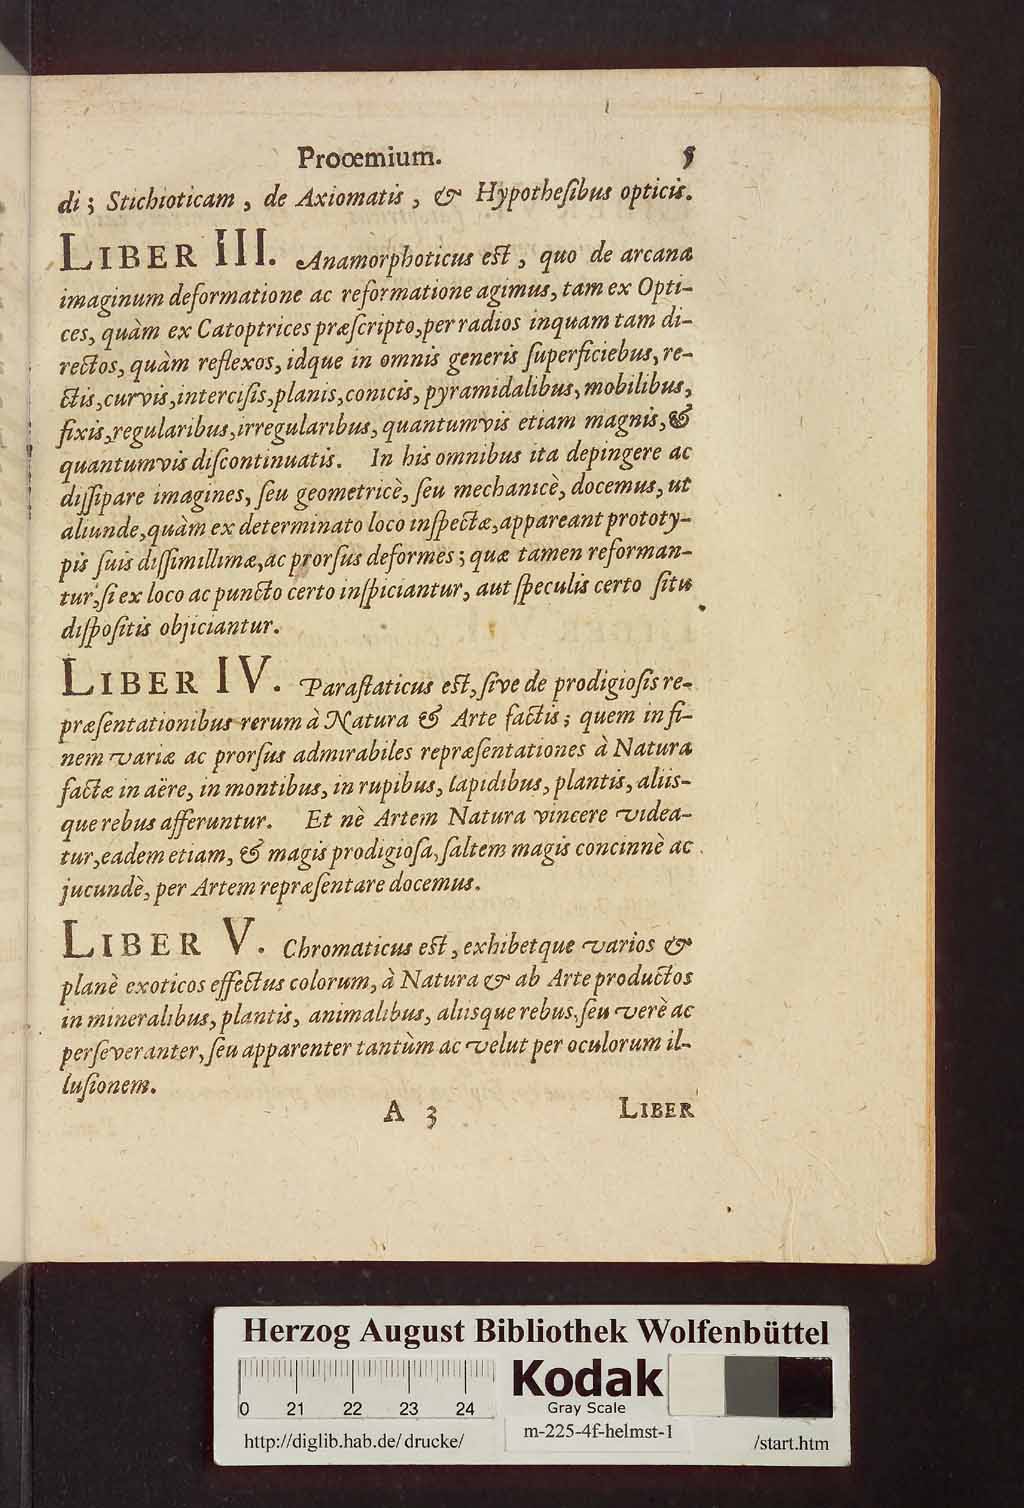 Prooemium. 5
di; Stichioticam, de Axiomatis, & Hypotheſibus opticis.
LIBER III. Anamorphoticus eſt, quo de arcana
imaginum deformatione ac reformatione agimus, tam ex Opti-
ces, quàm ex Catoptrices præſcripto, per radios inquam tam di-
rectos, quàm reflexos, idque in omnis generis ſuperficiebus, re-
ctis, curvis, interciſis, planis, conicis, pyramidalibus, mobilibus,
fixis, regularibus, irregularibus, quantumvis etiam magnis, &
quantumvis diſcontinuatis. In his omnibus ita depingere ac
diſſipare imagines, ſeu geometricè, ſeu mechanicè, docemus, ut
aliunde, quàm ex determinato loco inſpectæ, appareant prototy-
pis ſuis diſſimillimæ, ac prorſus deformes; quæ tamen reforman-
tur, ſi ex loco ac puncto certo inſpiciantur, aut ſpeculis certo ſitu
diſpoſitis objiciantur.
LIBER IV. Paraſtaticus eſt, ſive de prodigioſis re-
præſentationibus rerum à Natura & Arte factis; quem in fi-
nem variæ ac prorſus admirabiles repræſentationes à Natura
factæ in aëre, in montibus, in rupibus, lapidibus, plantis, aliis-
que rebus afferuntur. Et nè Artem Natura vincere videa-
tur, eadem etiam, & magis prodigioſa, ſaltem magis concinnè ac
jucundè, per Artem repræſentare docemus.
LIBER V. Chromaticus eſt, exhibetque varios &
planè exoticos effectus colorum, à Natura & ab Arte productos
in mineralibus, plantis, animalibus, aliisque rebus, ſeu verè ac
perſeveranter, ſeu apparenter tantùm ac velut per oculorum il-
luſionem.
A 3 LIBER
Herzog August Bibliothek Wolfenbüttel
0 21 22 23 24
Kodak
Gray Scale
http://diglib.hab.de/drucke/ m-225-4f-helmst-1 /start.htm